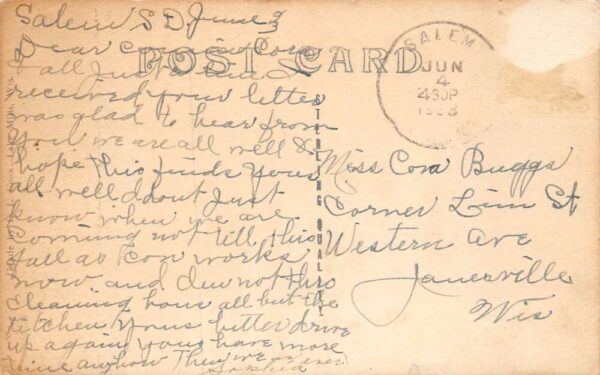 Salem S D June 3
Dear Cousin Cora
POST CARD
& all Just
received your letter
was glad to hear from
you we are all well &
hope this finds you
all well dont Just
know when we are
coming not till this
fall as works
now and Im not thro
cleaning house all but the
kitchen Yours better drive
up again you have more
time anyhow Then we as ever
Sophia
STERLING QUALITY
SALEM
JUN
4
430P
Miss Cora Buggs
Corner Linn St
Western Ave
Janesville
Wis